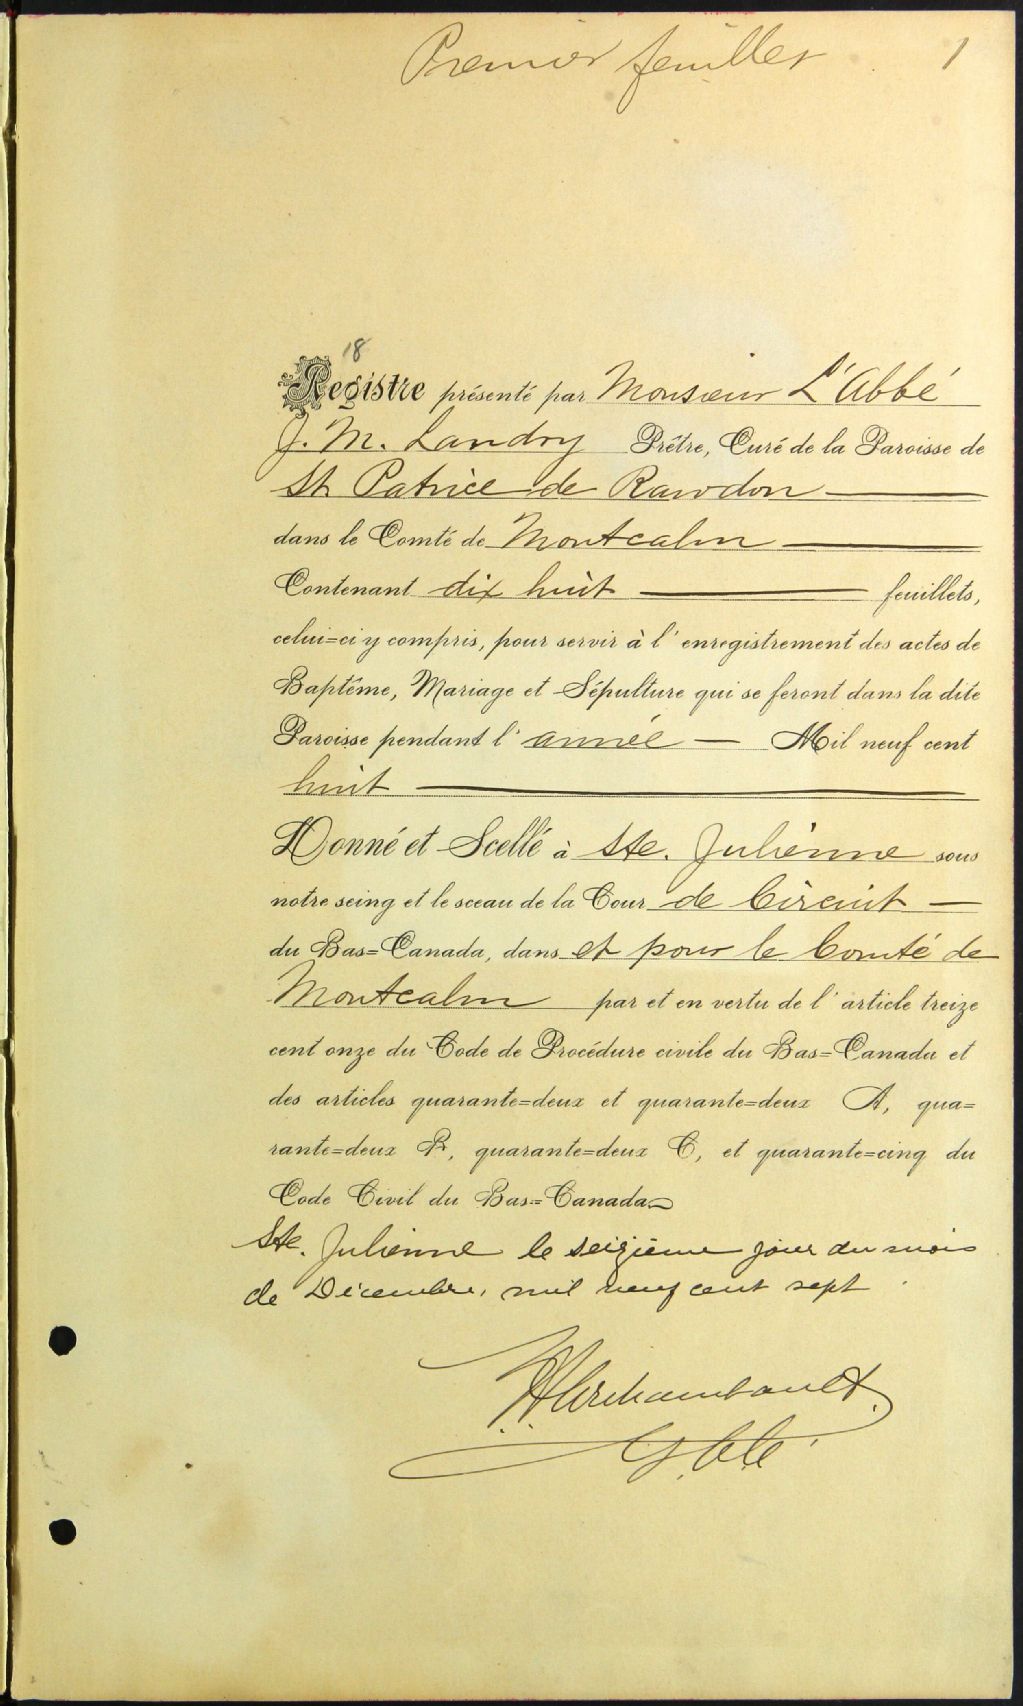 Premier feuillet 1
18
Registre présenté par Monsieur L'Abbé
J. M. Landry Prêtre, Curé de la Paroisse de
St Patrice de Rawdon
dans le Comté de Montcalm
Contenant dix huit feuillets,
celui=ci y compris, pour servir à l'enregistrement des actes de
Baptême, Mariage et Sépulture qui se feront dans la dite
Paroisse pendant l'année — Mil neuf cent
huit
Donné et Scellé à Ste. Julienne sous
notre seing et le sceau de la Cour de Circuit —
du Bas=Canada, dans et pour le Comté de
Montcalm par et en vertu de l'article treize
cent onze du Code de Procédure civile du Bas=Canada et
des articles quarante=deux et quarante=deux A, qua=
rante=deux B, quarante=deux C, et quarante=cinq du
Code Civil du Bas=Canada
Ste. Julienne le seizième jour du mois
de Décembre, mil neuf cent sept
Archambault